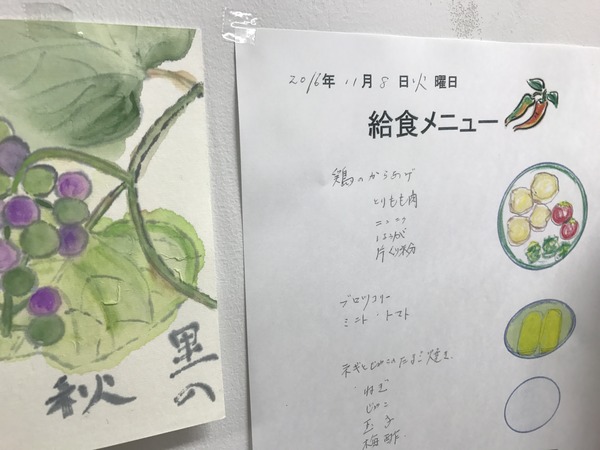 里の
秋
2016年 11月 8日 火曜日
給食メニュー
鶏のからあげ
とりもも肉
ニンニク
しょうが
片くり粉
ブロッコリー
ミニトマト
ねぎとじゃこのたまご焼き
ねぎ
じゃこ
玉子
梅酢